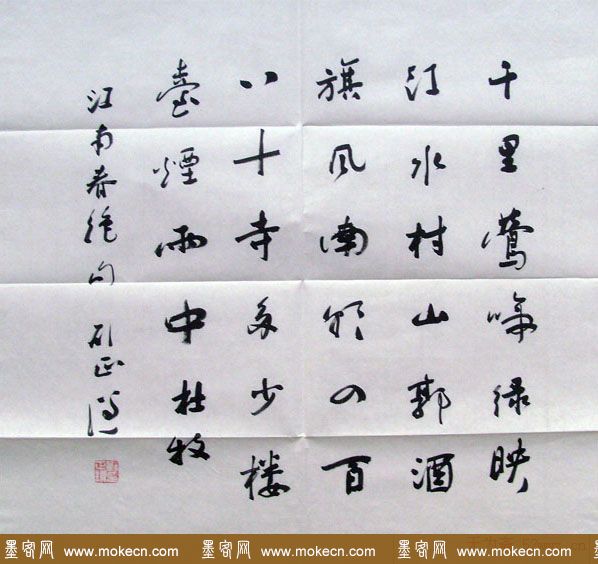 千里莺啼绿映
江水村山郭酒
旗风南朝四百
八十寺多少楼
臺煙雨中杜牧
江南春绝句
墨客网 www.mokecn.com 墨客网 www.mokecn.com 墨客网 www.mokecn.com